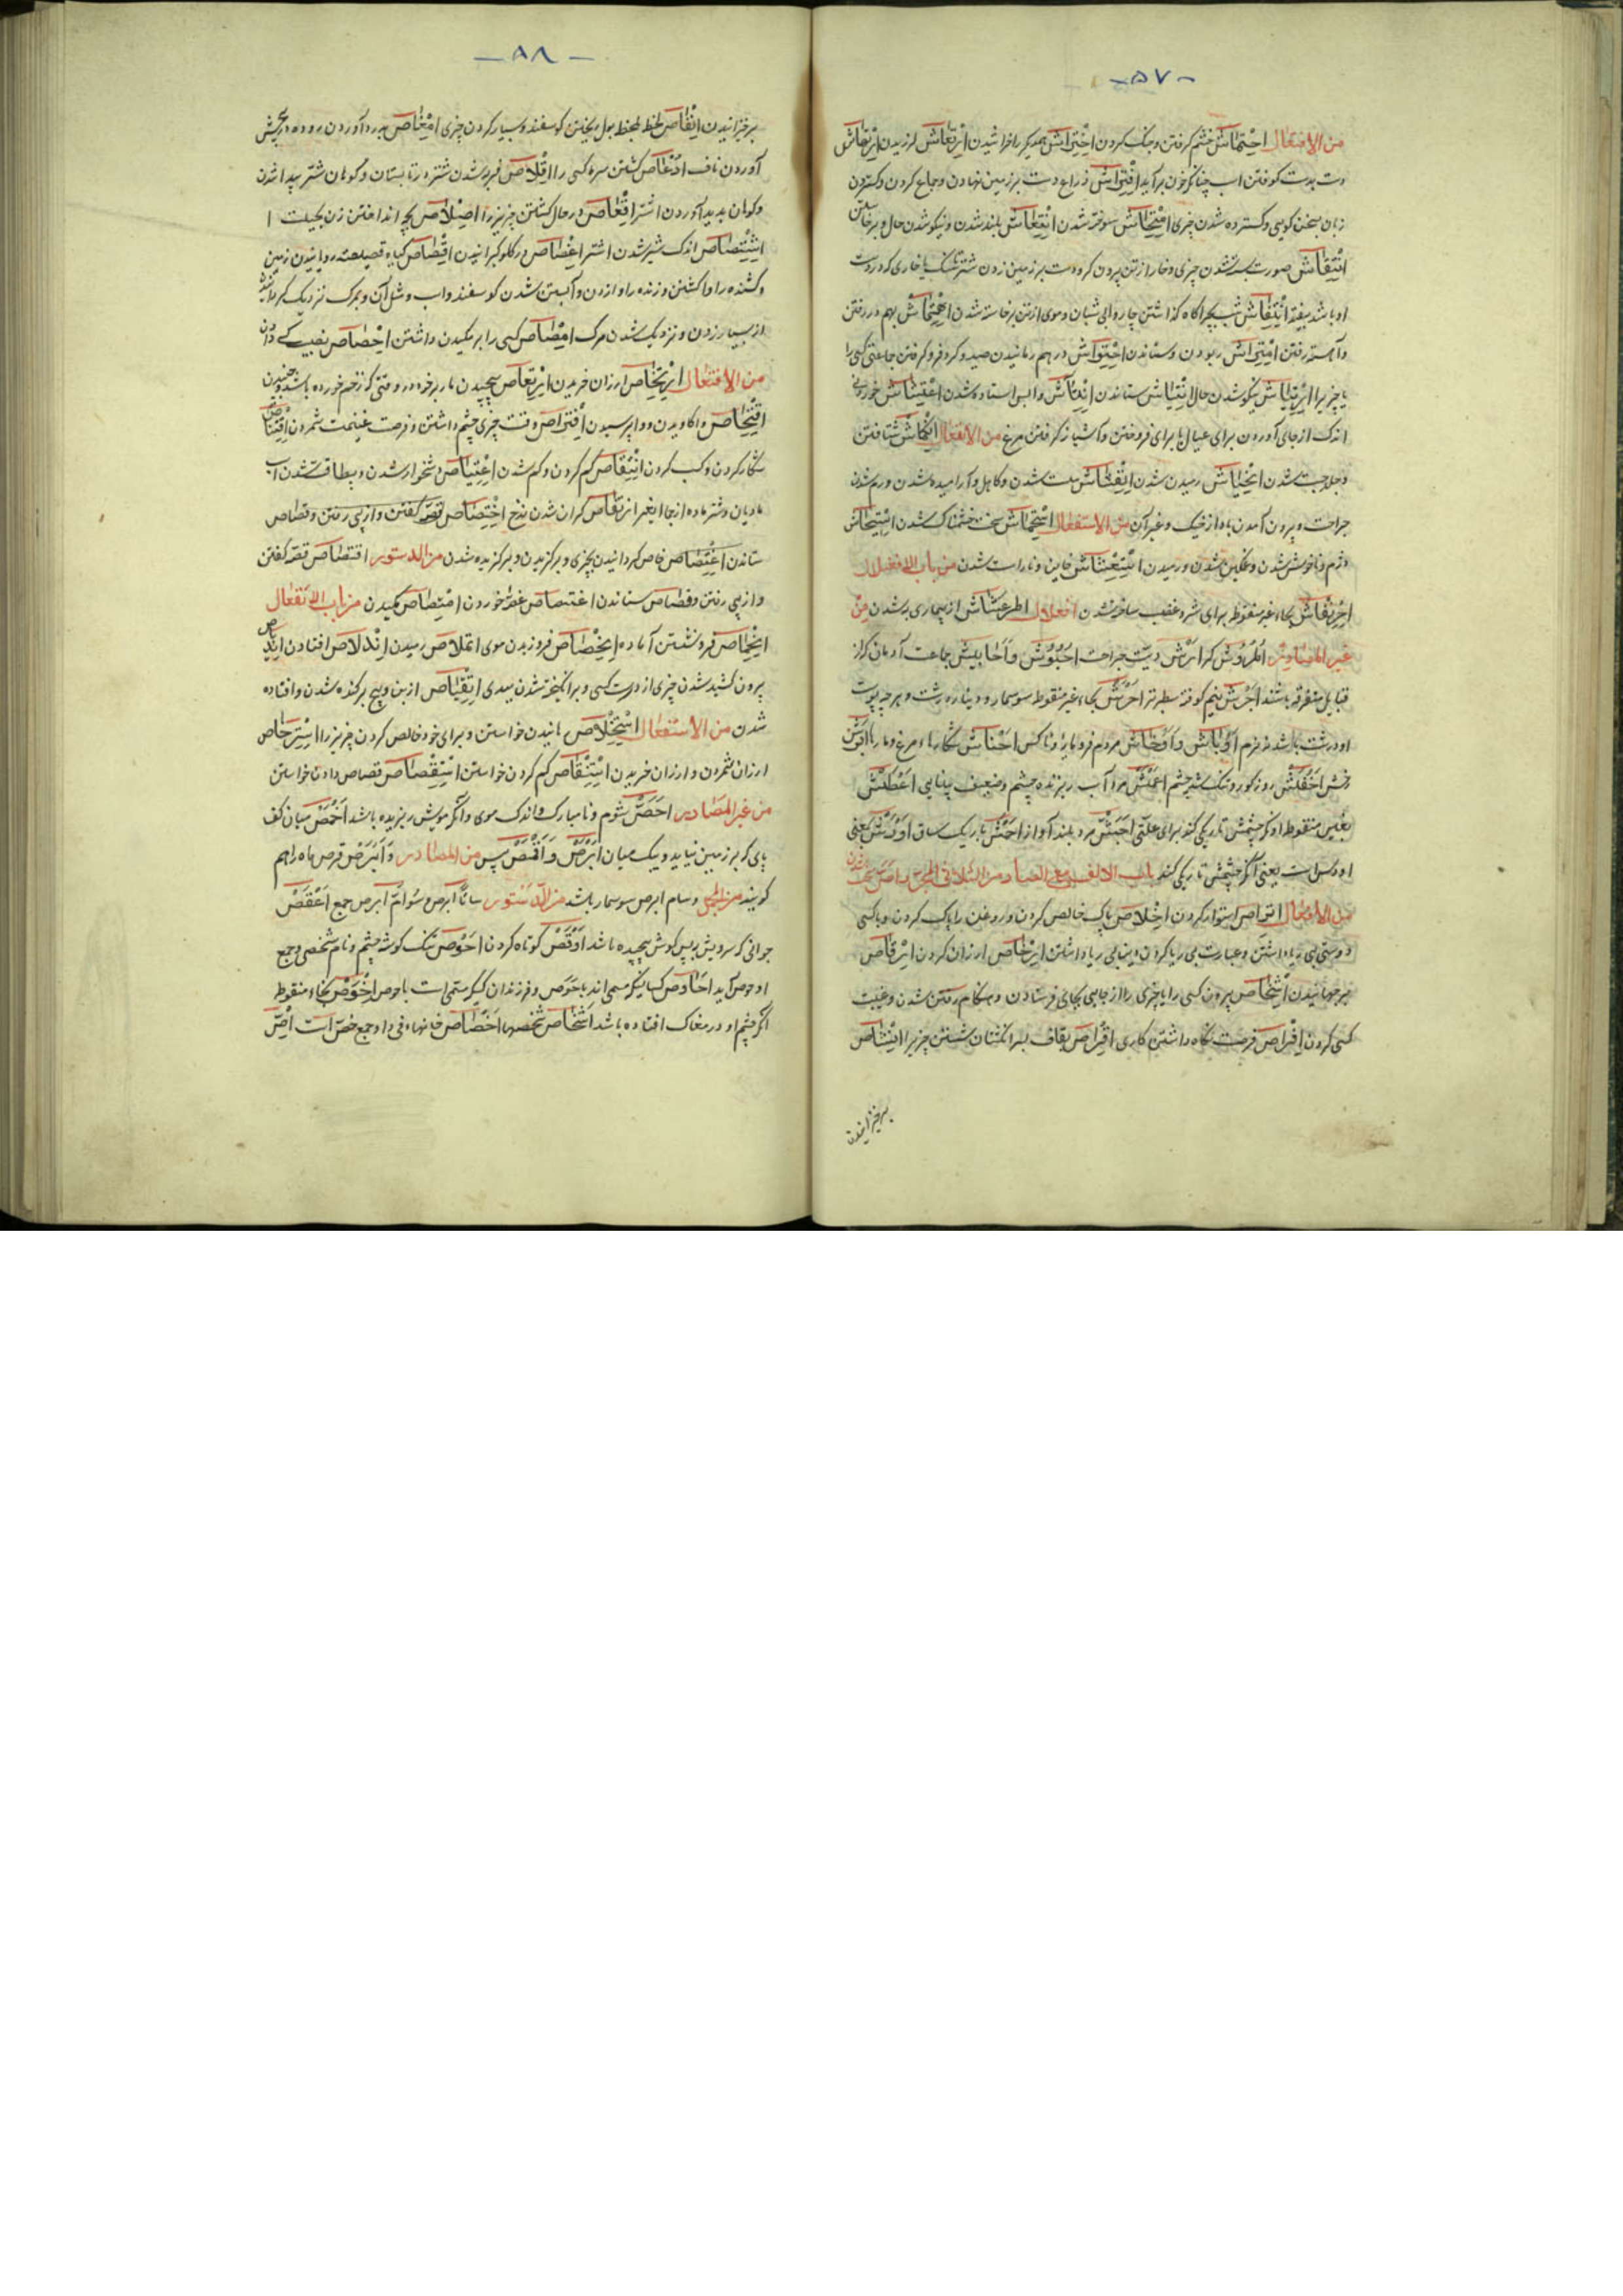 -۵۷-
من الافتعال احتماش خشم گرفتن و جنگ کردن اختراش همدیگر را خراشیدن ارتعاش لرزیدن ارتهاش
دست بدست کوفتن اسب چنانکه خون برآید افتراش ذراع دست بر زمین نهادن و جماع کردن و گستردن
زبان بسخن گویی و گسترده شدن چیزی امتحاش سوخته شدن انتعاش بلند شدن و نیکو شدن حال و برخاستن
انتقاش صورت بسته شدن چیزی و خار از تن بیرون کردن و دست بر زمین زدن شتر تا سنگ یا خاری که در دست
او باشد بیفتد انتفاش شب بچراگاه گذاشتن چاروا بی شبان و موی از تن برخاسته شدن اهتماش بهم در رفتن
و آهسته رفتن امتراش ربودن و ستاندن احتواش در هم رمانیدن صید و گرد فرو گرفتن جماعتی کسی را
یا چیزیرا ارتیاش نیکو شدن حال انتیاش ستاندن
اندک از جای آوردن برای عیال یا برای فروختن و آشیانه گرفتن مرغ من الانفعال انکماش شتافتن
و جلد و چست شدن انحیاش رمیدن شدن انفشاش سست شدن و کاهل و آرامیده شدن ورم شدن
جراحت و بیرون آمدن باد از خیک و غیر آن من الاستفعال استحماش سخت خشمناک شدن استیحاش
دژم و ناخوش شدن و غمگین شدن و رمیدن استغشاش خاین و ناراست شدن من باب الافعنلال
احرنفاش بحاء غیر منقوط برای شر و غضب ساخته شدن افعلال اطرغشاش از بیماری به شدن من
غیر المصادر اطروش کر ارش دیت جراحت احبوش و احابیش جماعت آدمیان که از
قبایل متفرقه باشند اجرش نیم کوفته سطبرتر احرش بحاء غیر منقوط سوسمار و دینار درشت و هر چه پوست
او درشت باشد نه نرم اوباش و اوخاش مردم فرومایه و ناکس احناش شکارها و مرغ و مارها ابرش
اخفش روز کور و تنک شده چشم اعمش مرد آب ریزنده چشم و ضعیف بینایی اغطش
بغین منقوط او که چشمش تاریکی کند برای علتی اجش مرد بلند آواز احمش باریک ساق
یعنی آنکه چشمش تاریکی کند باب الالف مع الصاد من الثلاثی المجرد
من الافعال استوار کردن اخلاص پاک خالص کردن و روغن را پاک کردن و با کسی
دوستی بی ریا داشتن و عبارت بی ریا کردن و بینایی ریا داشتن ارخاص ارزان کردن ارقاص
برجهانیدن اشخاص بیرون کسی را یا چیزی را از جایی بجائی فرستادن و هنگام رفتن شدن و غیبت
کسی کردن افراص فرصت نگاه داشتن کاری اقراص بقاف بسر انگشتان شستن چیزیرا انشاص
برخیزانیدن
-۵۸-
برخیزانیدن انفاص لحظه لحظه بول ریختن گوسفند و بسیار کردن چیزی امغاص بدرد آوردن روده و بپیچش
آوردن ناف ادغاص کشتن سرما کسی را اقلاص فربه شدن شتر در تابستان و کوهان شتر پیدا شدن
و کوهان پدید آوردن اشتر اقعاص در حال کشتن چیزیرا املاص بچه انداختن زن
اشتصاص اندک شیر شدن اشتر اغصاص در گلو گیرانیدن اقصاص گیاه قصیصه رویانیدن زمین
و کشنده را وا کشتن و زننده را وا زدن و آبستن شدن گوسفند و اسب و مثل آن و بمرگ نزدیک گردانیدن
از بسیار زدن و نزدیک شدن مرگ امصاص کسی را بر مکیدن داشتن احصاص نصیب کسی دادن
من الافتعال ارتخاص ارزان خریدن ارتعاص پیچیدن مار بر خود در وقتی که زخم خورده باشد و جنبیدن
افتحاص واکاویدن و واپرسیدن افتراص وقت چیزی چشم داشتن و فرصت غنیمت شمردن اقتناص
شکار کردن و کسب کردن انتقاص کم کردن و کم شدن اعتیاص دشخوار شدن و بیطاقت شدن اسب
مادیان و شتر ماده ارتقاص گران شدن نرخ اقتصاص قصه گفتن و از پی رفتن و قصاص
ستاندن اختصاص خاص گردانیدن بچیزی و برگزیدن و برگزیده شدن من الدستور اقتصاص قصه گفتن
و از پی رفتن و قصاص ستاندن اغتصاص غصه خوردن امتصاص مکیدن من باب الانفعال
انخماص فرو نشستن آماده انحصاص فرو ریزیدن موی انملاص رمیدن اندلاص افتادن
بیرون کشیده شدن چیزی از دست کسی و برانگیخته شدن ببدی انقیاص از بن و بیخ برکنده شدن و افتاده
شدن من الاستفعال استخلاص رهانیدن خواستن و برای خود خالص کردن چیزیرا استرخاص
ارزان شمردن و ارزان خریدن استنقاص کم کردن خواستن استقصاص قصاص دادن خواستن
من غیر المصادر احص شوم و نامبارک و اندک موی و آنکه مویش ریزیده باشد اخمص میان کف
پای که بر زمین نیاید و باریک میان ابرص و اقنص پیس من المصادر و ابرص قرص ماه را هم
گویند من المجمل و سام ابرص سوسمار باشد من الدستور سامّا ابرص و سوامّ ابرص جمع اعقص
جوانی که سرویش بر پس گوش پیچیده باشد اوقص کوتاه گردن احوص تنگ گوشه چشم و نام شخصی و جمع
او حوص آید احاوص کسانیکه مسمی اند باحوص و فرزندان کسیکه مسمی است باحوص اخوص بخاء منقوط
آنکه چشم او در مغاک افتاده باشد اشخاص شخصها اخصاص خانهاء نی و او جمع خص است اصّ